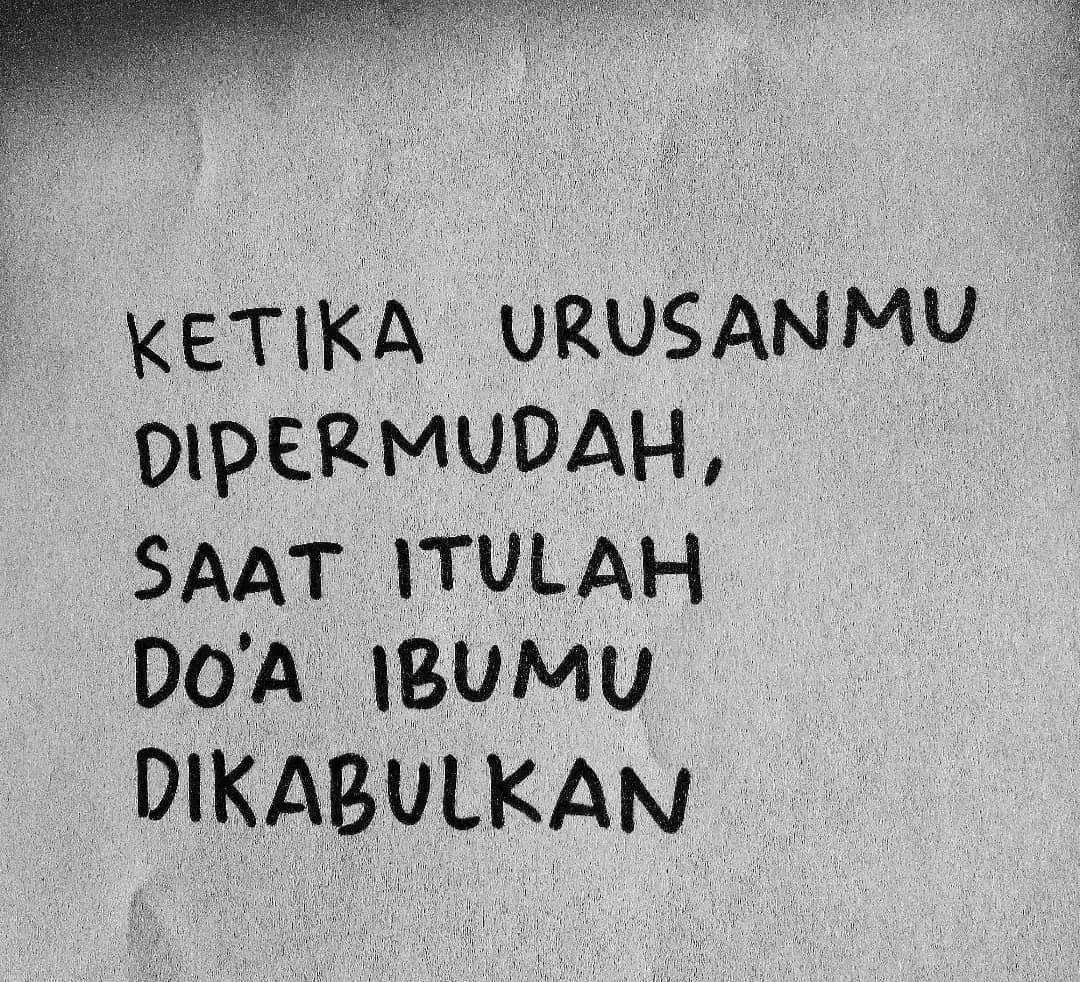 KETIKA URUSANMU
DIPERMUDAH,
SAAT ITULAH
DO'A IBUMU
DIKABULKAN